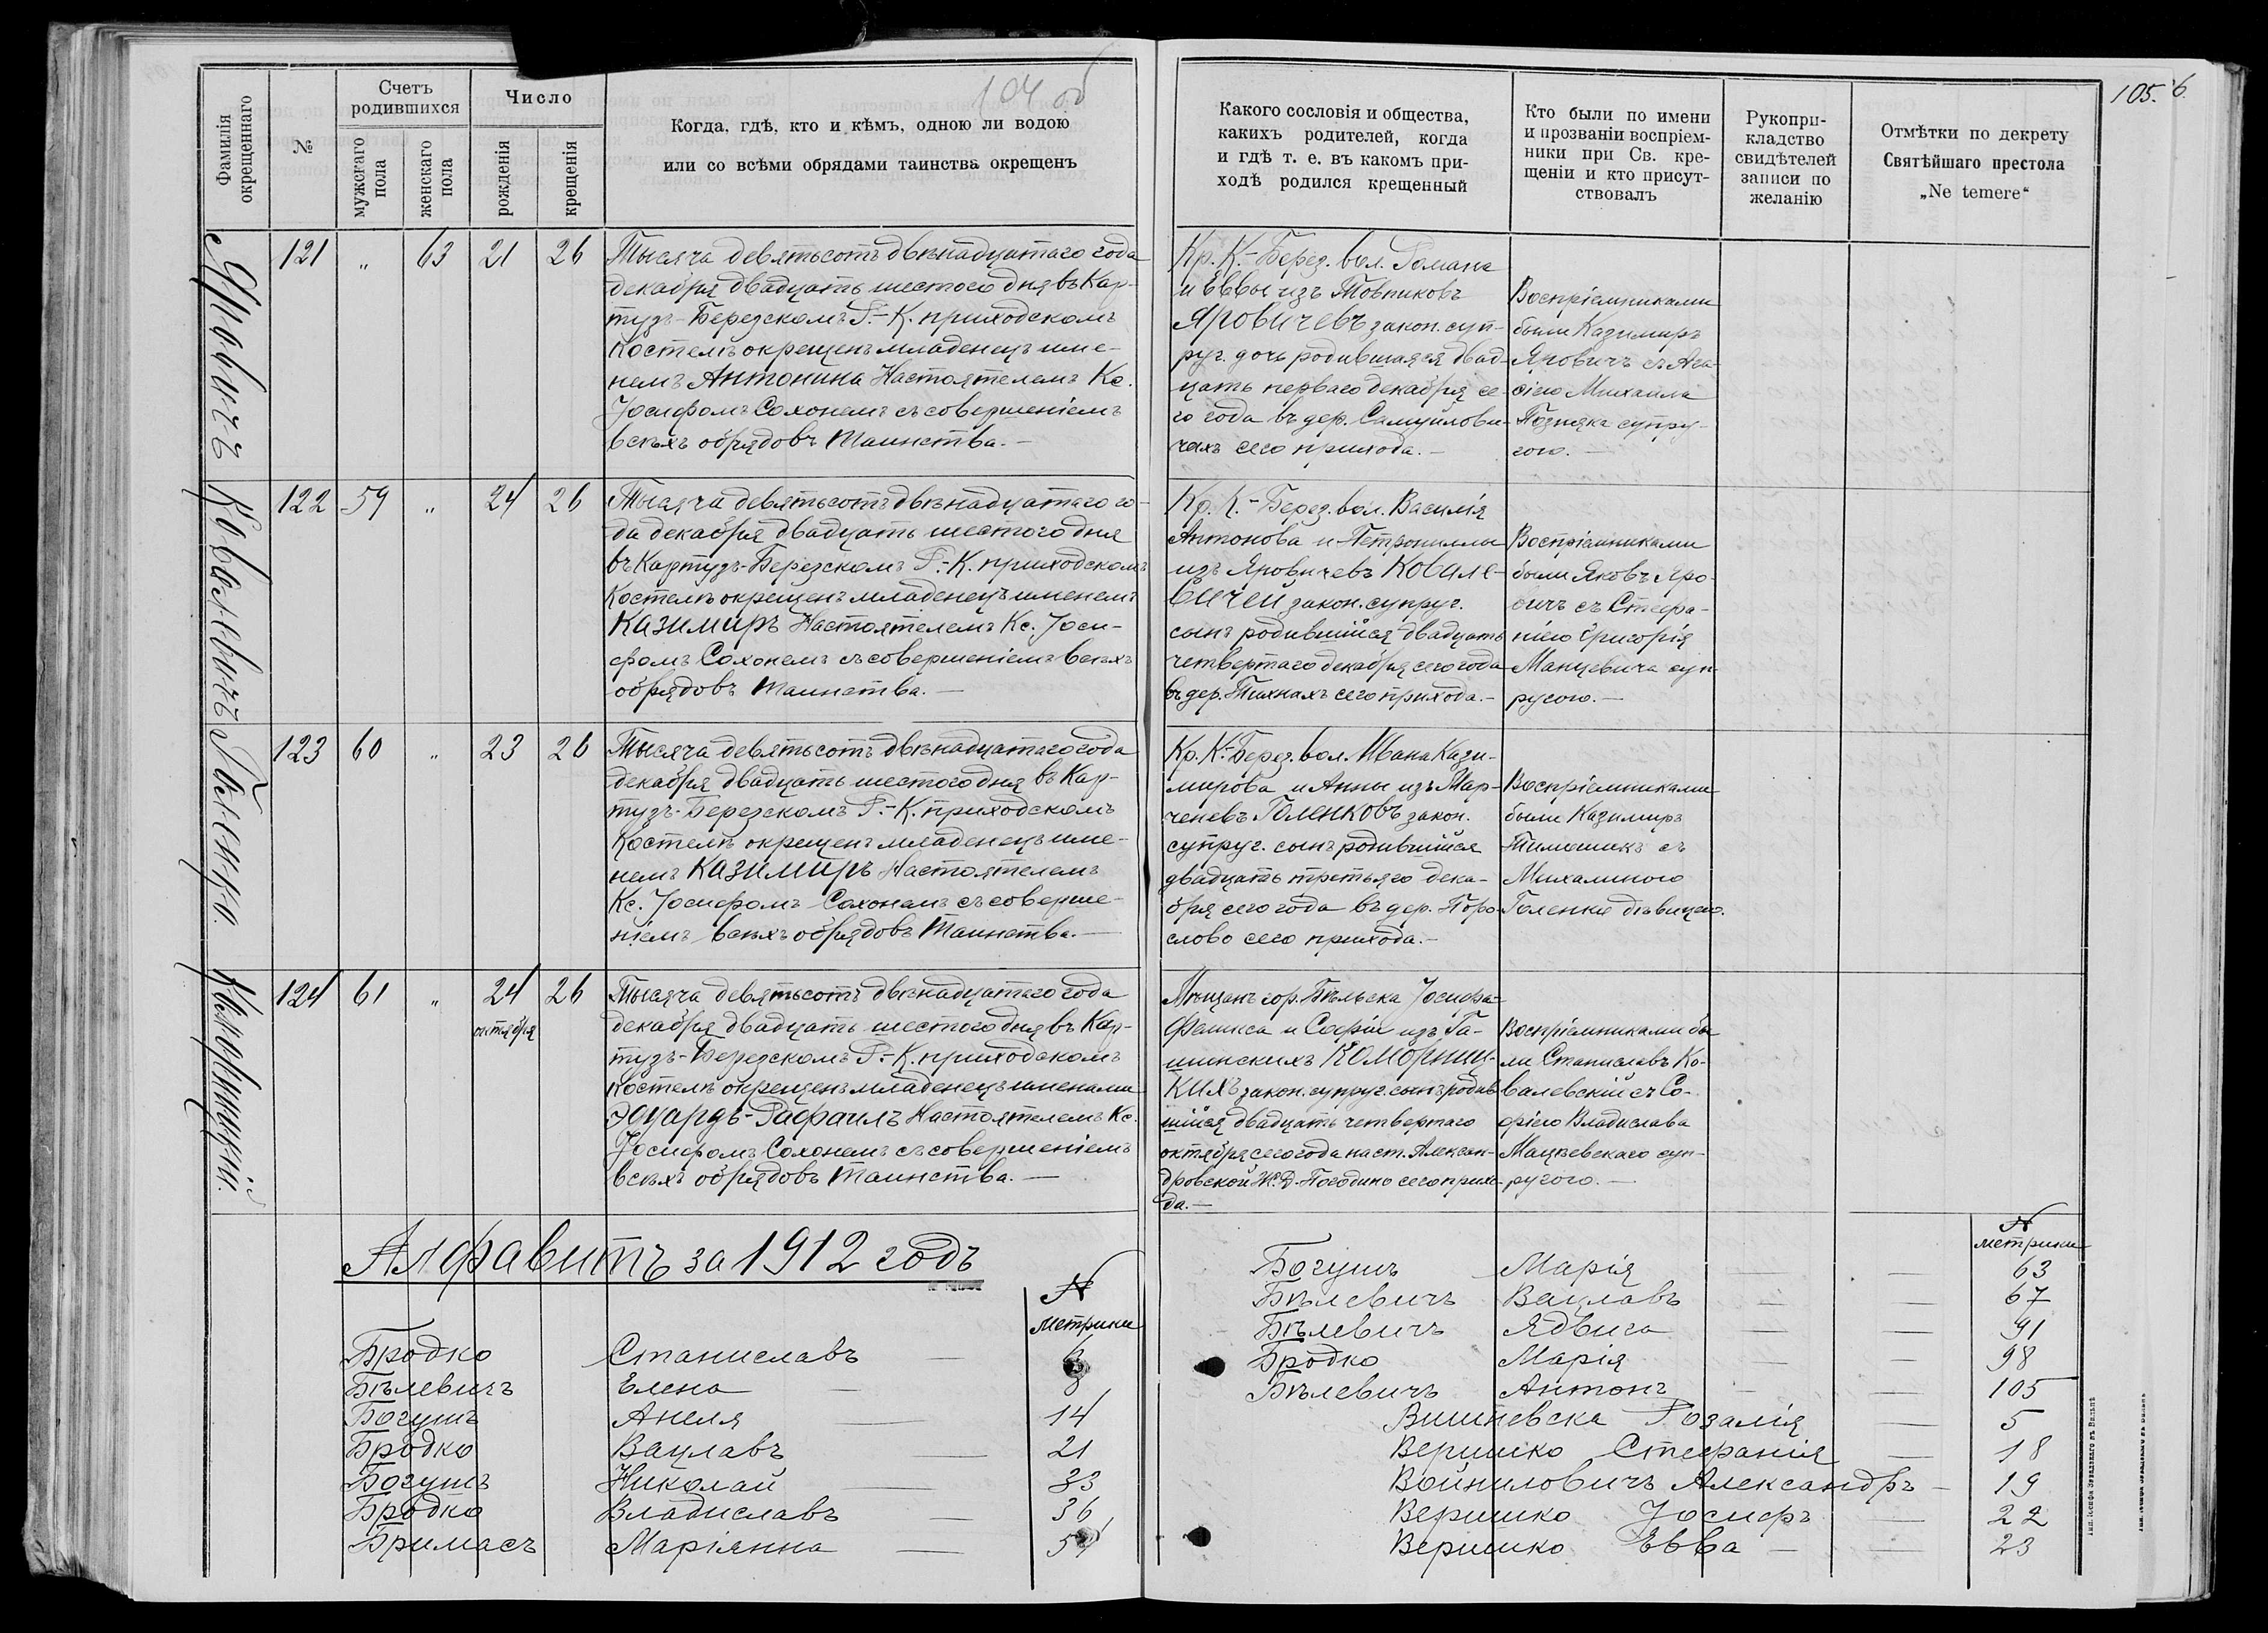 104 об
105. 6.
Фамилія окрещеннаго
№
Счетъ родившихся
мужскаго пола
женскаго пола
Число
рожденія
крещенія
Когда, гдѣ, кто и кѣмъ, одною ли водою
или со всѣми обрядами таинства окрещенъ
Какого сословія и общества,
какихъ родителей, когда
и гдѣ т. е. въ какомъ при-
ходѣ родился крещенный
Кто были по имени
и прозваніи воспріем-
ники при Св. кре-
щеніи и кто присут-
ствовалъ
Рукопри-
кладство
свидѣтелей
записи по
желанію
Отмѣтки по декрету
Святѣйшаго престола
„Ne temere“
Яровичъ
121 „ 63 21 26
Тысяча девятьсотъ двѣнадцатаго года
декабря двадцать шестого дня въ Кар-
тузъ-Березскомъ Р.-К. приходскомъ
Костелѣ окрещенъ младенецъ име-
немъ Антонина Настоятелемъ Кс.
Іосифомъ Сохонемъ съ совершеніемъ
всѣхъ обрядовъ Таинства. —
Кр. К.-Берез. вол. Романа
и Еввы изъ Товпиковъ
Яровичевъ закон. суп-
руг. дочь родившаяся двад-
цать перваго декабря се-
го года въ дер. Самуйлови-
чахъ сего прихода. —
Воспріемниками
были Казимиръ
Яровичъ съ Ага-
ѳіею Михаила
Позняка супру-
гою. —
Ковалевичъ
122 59 „ 24 26
Тысяча девятьсотъ двѣнадцатаго го-
да декабря двадцать шестого дня
въ Картузъ-Березскомъ Р.-К. приходскомъ
Костелѣ окрещенъ младенецъ именемъ
Казимиръ Настоятелемъ Кс. Іоси-
фомъ Сохонемъ съ совершеніемъ всѣхъ
обрядовъ Таинства. —
Кр. К.-Берез. вол. Василія
Антонова и Петрониллы
изъ Яровичевъ Ковале-
вичей закон. супруг.
сынъ родившійся двадцать
четвертаго декабря сего года
въ дер. Тихнахъ сего прихода. —
Воспріемниками
были Яковъ Яро-
вичъ съ Стефа-
ніею Григорія
Манцевича суп-
ругою. —
Голенко.
123 60 „ 23 26
Тысяча девятьсотъ двѣнадцатаго года
декабря двадцать шестого дня въ Кар-
тузъ-Березскомъ Р.-К. приходскомъ
Костелѣ окрещенъ младенецъ име-
немъ Казимиръ Настоятелемъ
Кс. Іосифомъ Сохонемъ съ соверше-
ніемъ всѣхъ обрядовъ Таинства. —
Кр. К.-Берез. вол. Ивана Кази-
мирова и Анны изъ Мар-
ченевъ Голенковъ закон.
супруг. сынъ родившійся
двадцать третьяго дека-
бря сего года въ дер. Поро-
слово сего прихода. —
Воспріемниками
были Казимиръ
Тимошикъ съ
Михалиною
Голенко дѣвицею.
Коморницкій.
124 61 „ 24 октября 26
Тысяча девятьсотъ двѣнадцатаго года
декабря двадцать шестого дня въ Кар-
тузъ-Березскомъ Р.-К. приходскомъ
Костелѣ окрещенъ младенецъ именами
Эдуардъ-Рафаилъ Настоятелемъ Кс.
Іосифомъ Сохонемъ съ совершеніемъ
всѣхъ обрядовъ Таинства. —
Мѣщанъ гор. Бѣльска Іосифа-
Феликса и Софіи изъ Га-
шинскихъ Коморниц-
кихъ закон. супруг. сынъ родив-
шійся двадцать четвертаго
октября сего года на ст. Алексан-
дровской Ж. Д. Погодино сего прихо-
да. —
Воспріемниками бы-
ли Станиславъ Ко-
валевскій съ Со-
фіею Владислава
Мацѣевскаго суп-
ругою. —
Алфавитъ за 1912 годъ
№ метрики
Бродко Станиславъ — 6
Бѣлевичъ Елена — 8
Богушъ Анеля — 14
Бродко Вацлавъ — 21
Богушъ Николай — 33
Бродко Владиславъ — 36
Бримасъ Маріянна —
№ метрики
Богушъ Марія — — 63
Бѣлевичъ Вацлавъ — — 67
Бѣлевичъ Ядвига — — 91
Бродко Марія — — 98
Бѣлевичъ Антонъ — — 105
Вишневска Розалія — 5
Веришко Стефанія — 18
Войниловичъ Александръ — 19
Веришко Іосифъ — 22
Веришко Евва — — 23